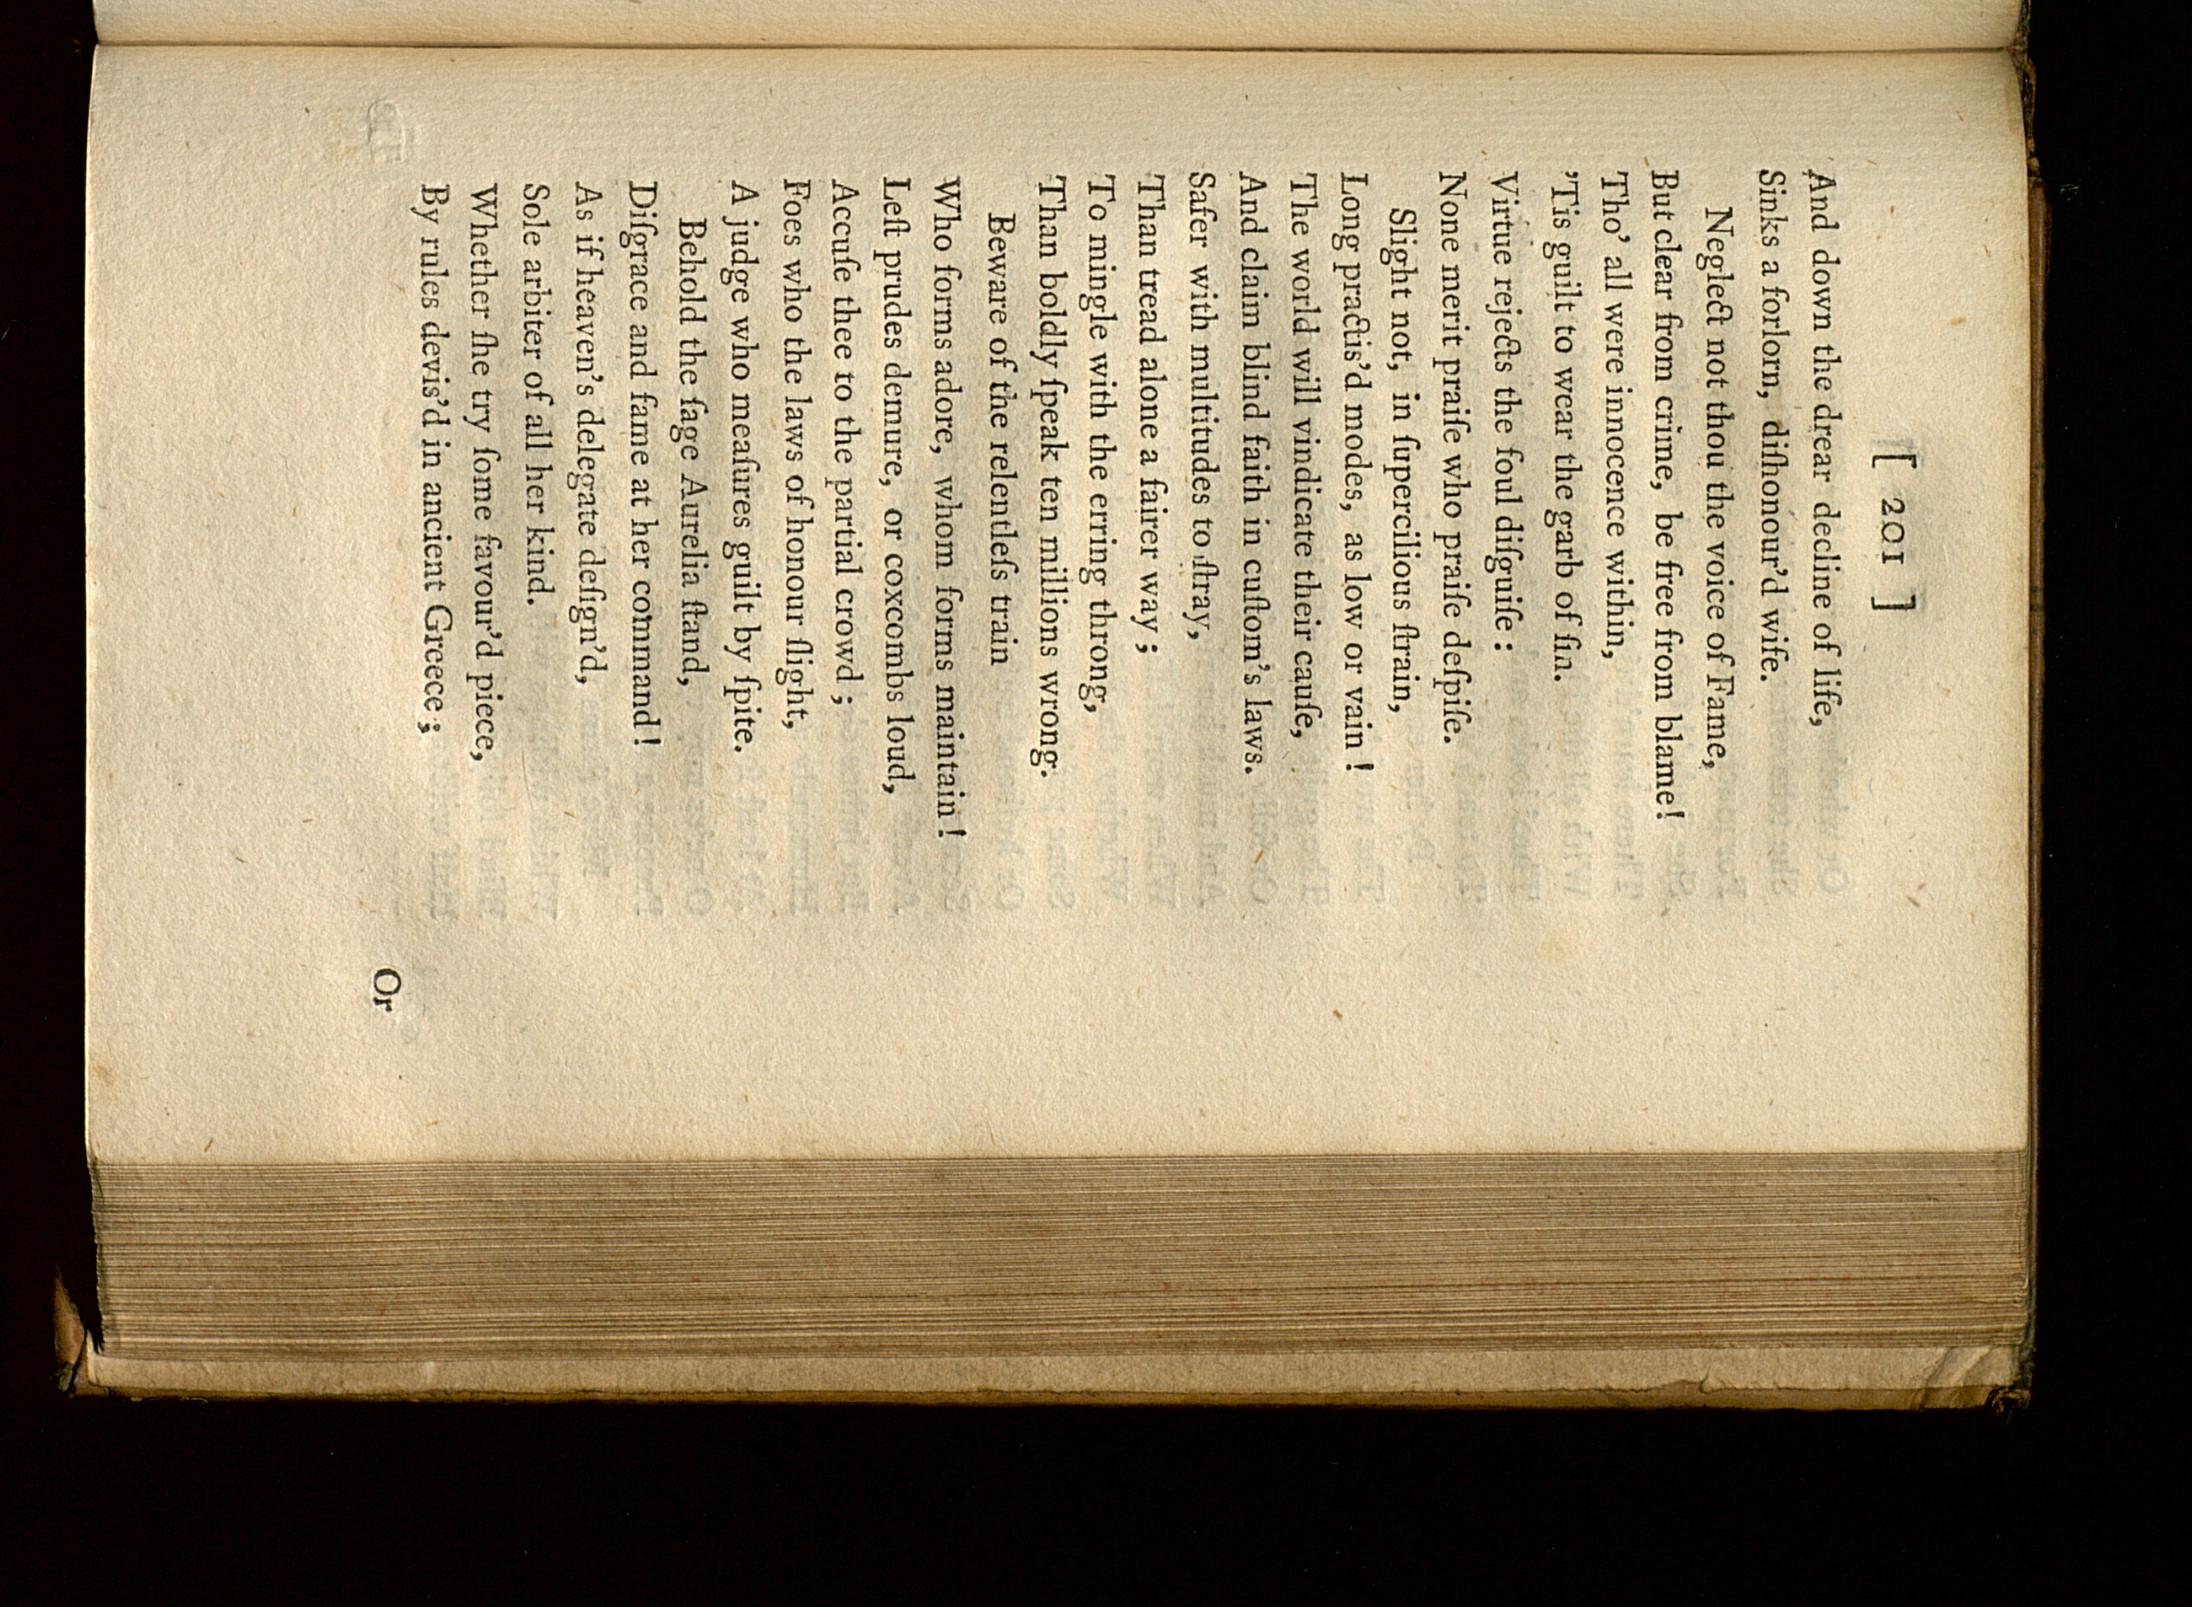 [ 201 ]
And down the drear decline of life,
Sinks a forlorn, diſhonour'd wife.
Neglect not thou the voice of Fame,
But clear from crime, be free from blame!
Tho' all were innocence within,
'Tis guilt to wear the garb of ſin.
Virtue rejects the foul diſguiſe:
None merit praiſe who praiſe deſpiſe.
Slight not, in ſupercilious ſtrain,
Long practis'd modes, as low or vain!
The world will vindicate their cauſe,
And claim blind faith in cuſtom's laws.
Safer with multitudes to ſtray,
Than tread alone a fairer way;
To mingle with the erring throng,
Than boldly ſpeak ten millions wrong.
Beware of the relentleſs train
Who forms adore, whom forms maintain!
Leſt prudes demure, or coxcombs loud,
Accuſe thee to the partial crowd;
Foes who the laws of honour ſlight,
A judge who meaſures guilt by ſpite.
Behold the ſage Aurelia ſtand,
Diſgrace and fame at her command!
As if heaven's delegate deſign'd,
Sole arbiter of all her kind.
Whether ſhe try ſome favour'd piece,
By rules devis'd in ancient Greece;
Or